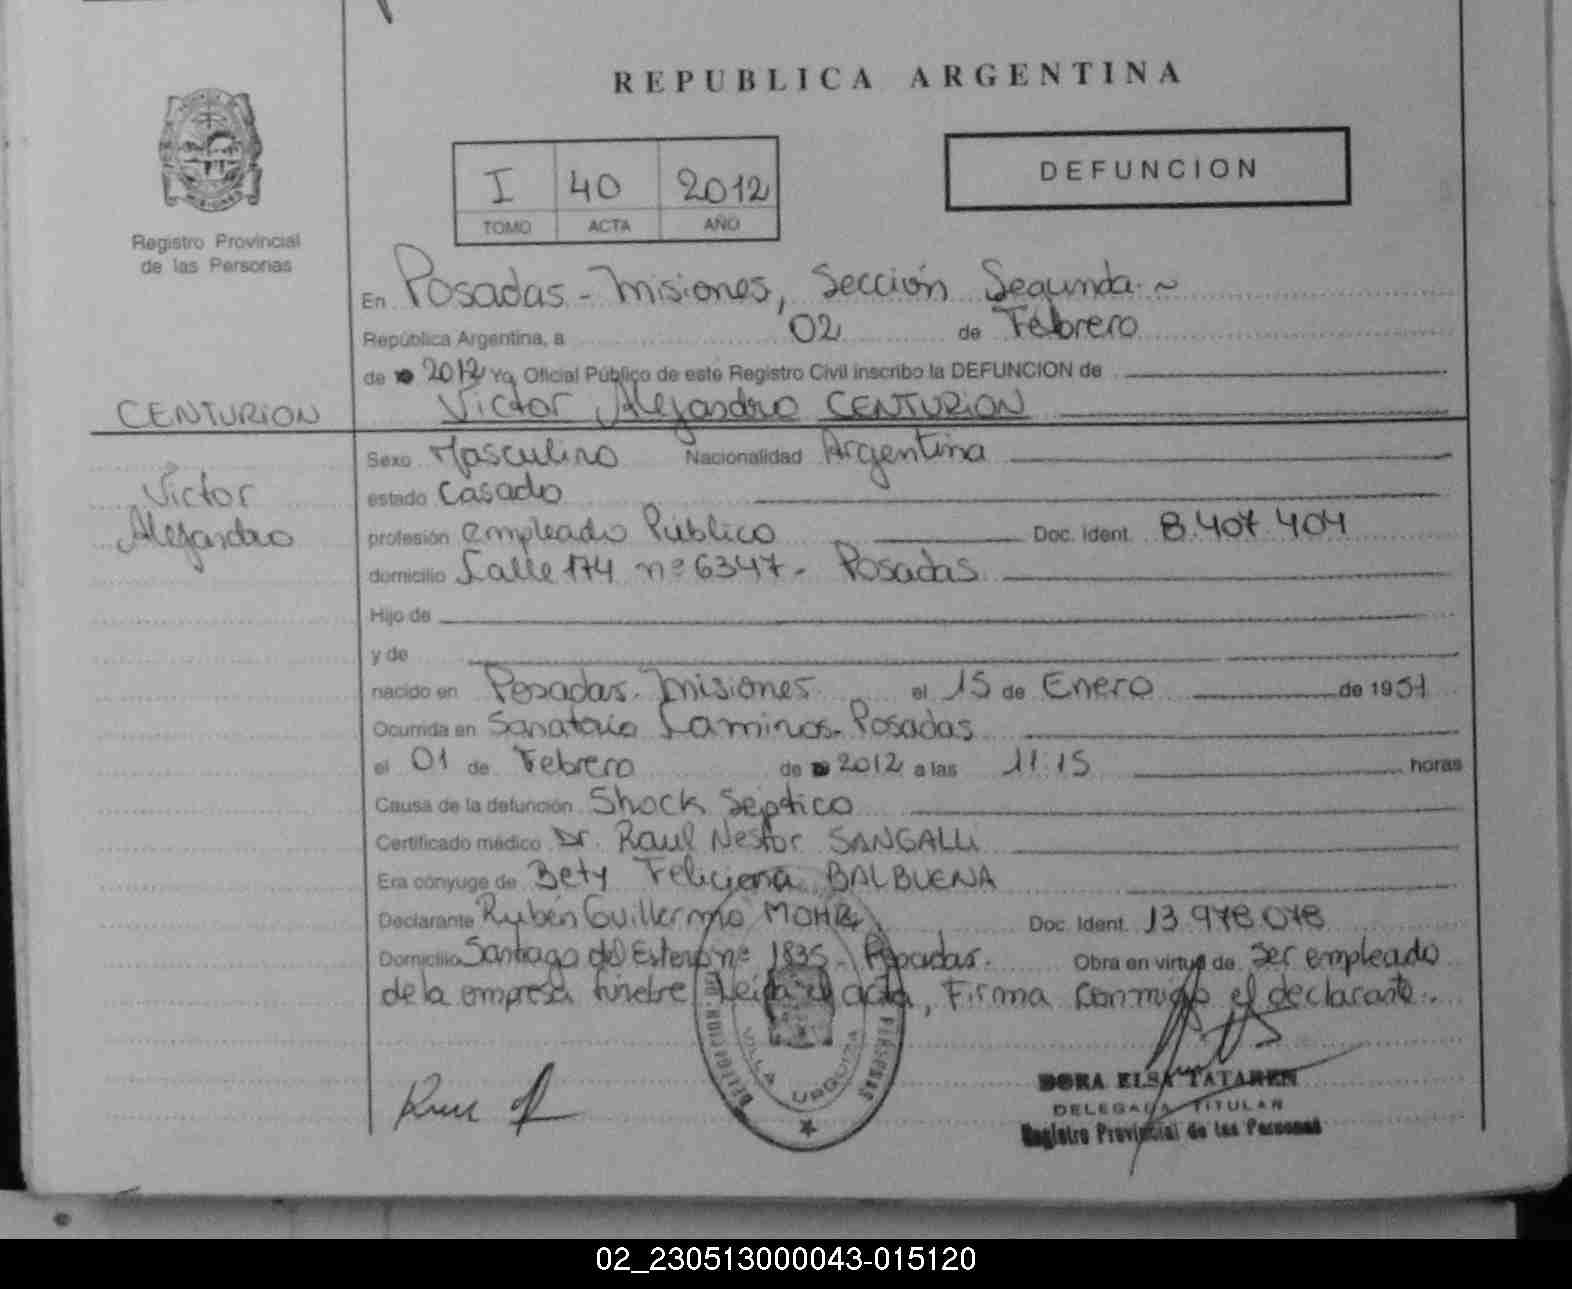 REPUBLICA ARGENTINA
I 40 2012
TOMO ACTA AÑO
DEFUNCION
Registro Provincial
de las Personas
En Posadas - Misiones, Sección Segunda ~
República Argentina, a 02 de Febrero
de 2012 Yo, Oficial Público de este Registro Civil inscribo la DEFUNCION de
Victor Alejandro CENTURION
CENTURION
Victor
Alejandro
Sexo Masculino Nacionalidad Argentina
estado Casado
profesión empleado Publico Doc. Ident. 8.407.404
domicilio Calle 174 nº 6347 - Posadas
Hijo de
y de
nacido en Posadas - Misiones el 15 de Enero de 1951
Ocurrida en Sanatorio Caminos - Posadas
el 01 de Febrero de 2012 a las 11:15 horas
Causa de la defunción Shock Septico
Certificado médico Dr. Raul Nestor SANGALLI
Era cónyuge de Bety Feliciana BALBUENA
Declarante Rubén Guillermo MOHR Doc. Ident. 13.978.078
Domicilio Santiago del Estero nº 1835 - Posadas. Obra en virtud de ser empleado
de la empresa fúnebre Leída el acta, Firma conmigo el declarante.
VILLA URQUIZA
DORA ELSA TATAREN
DELEGADA TITULAR
Registro Provincial de las Personas
02_230513000043-015120